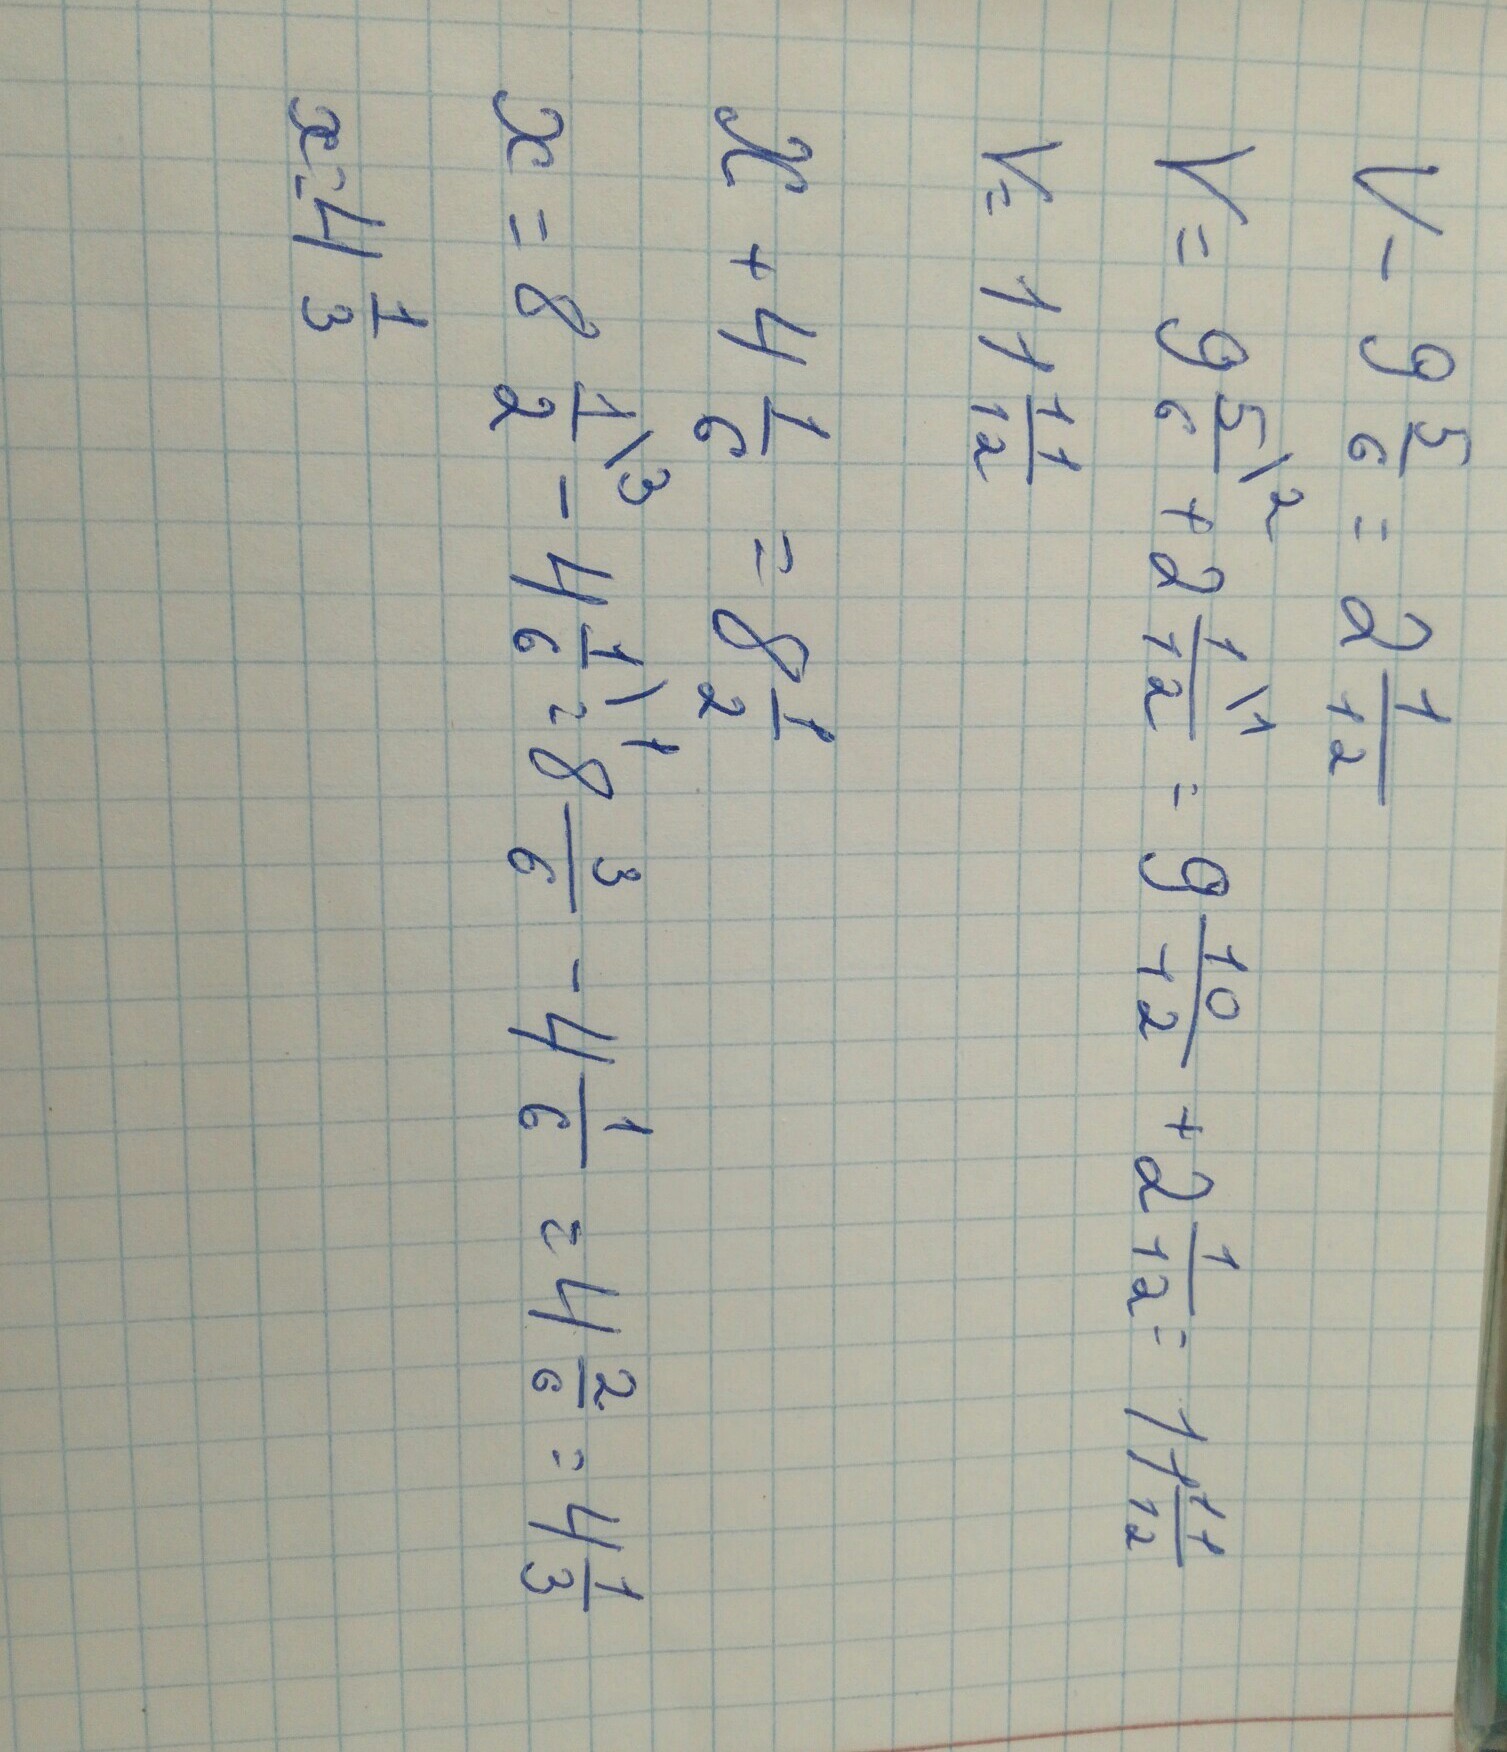 V - 9 5/6 = 2 1/12
V = 9 5/6 \2 + 2 1/12 \1 = 9 10/12 + 2 1/12 = 11 11/12
V = 11 11/12
x + 4 1/6 = 8 1/2
x = 8 1/2 \3 - 4 1/6 \1 = 8 3/6 - 4 1/6 = 4 2/6 = 4 1/3
x = 4 1/3